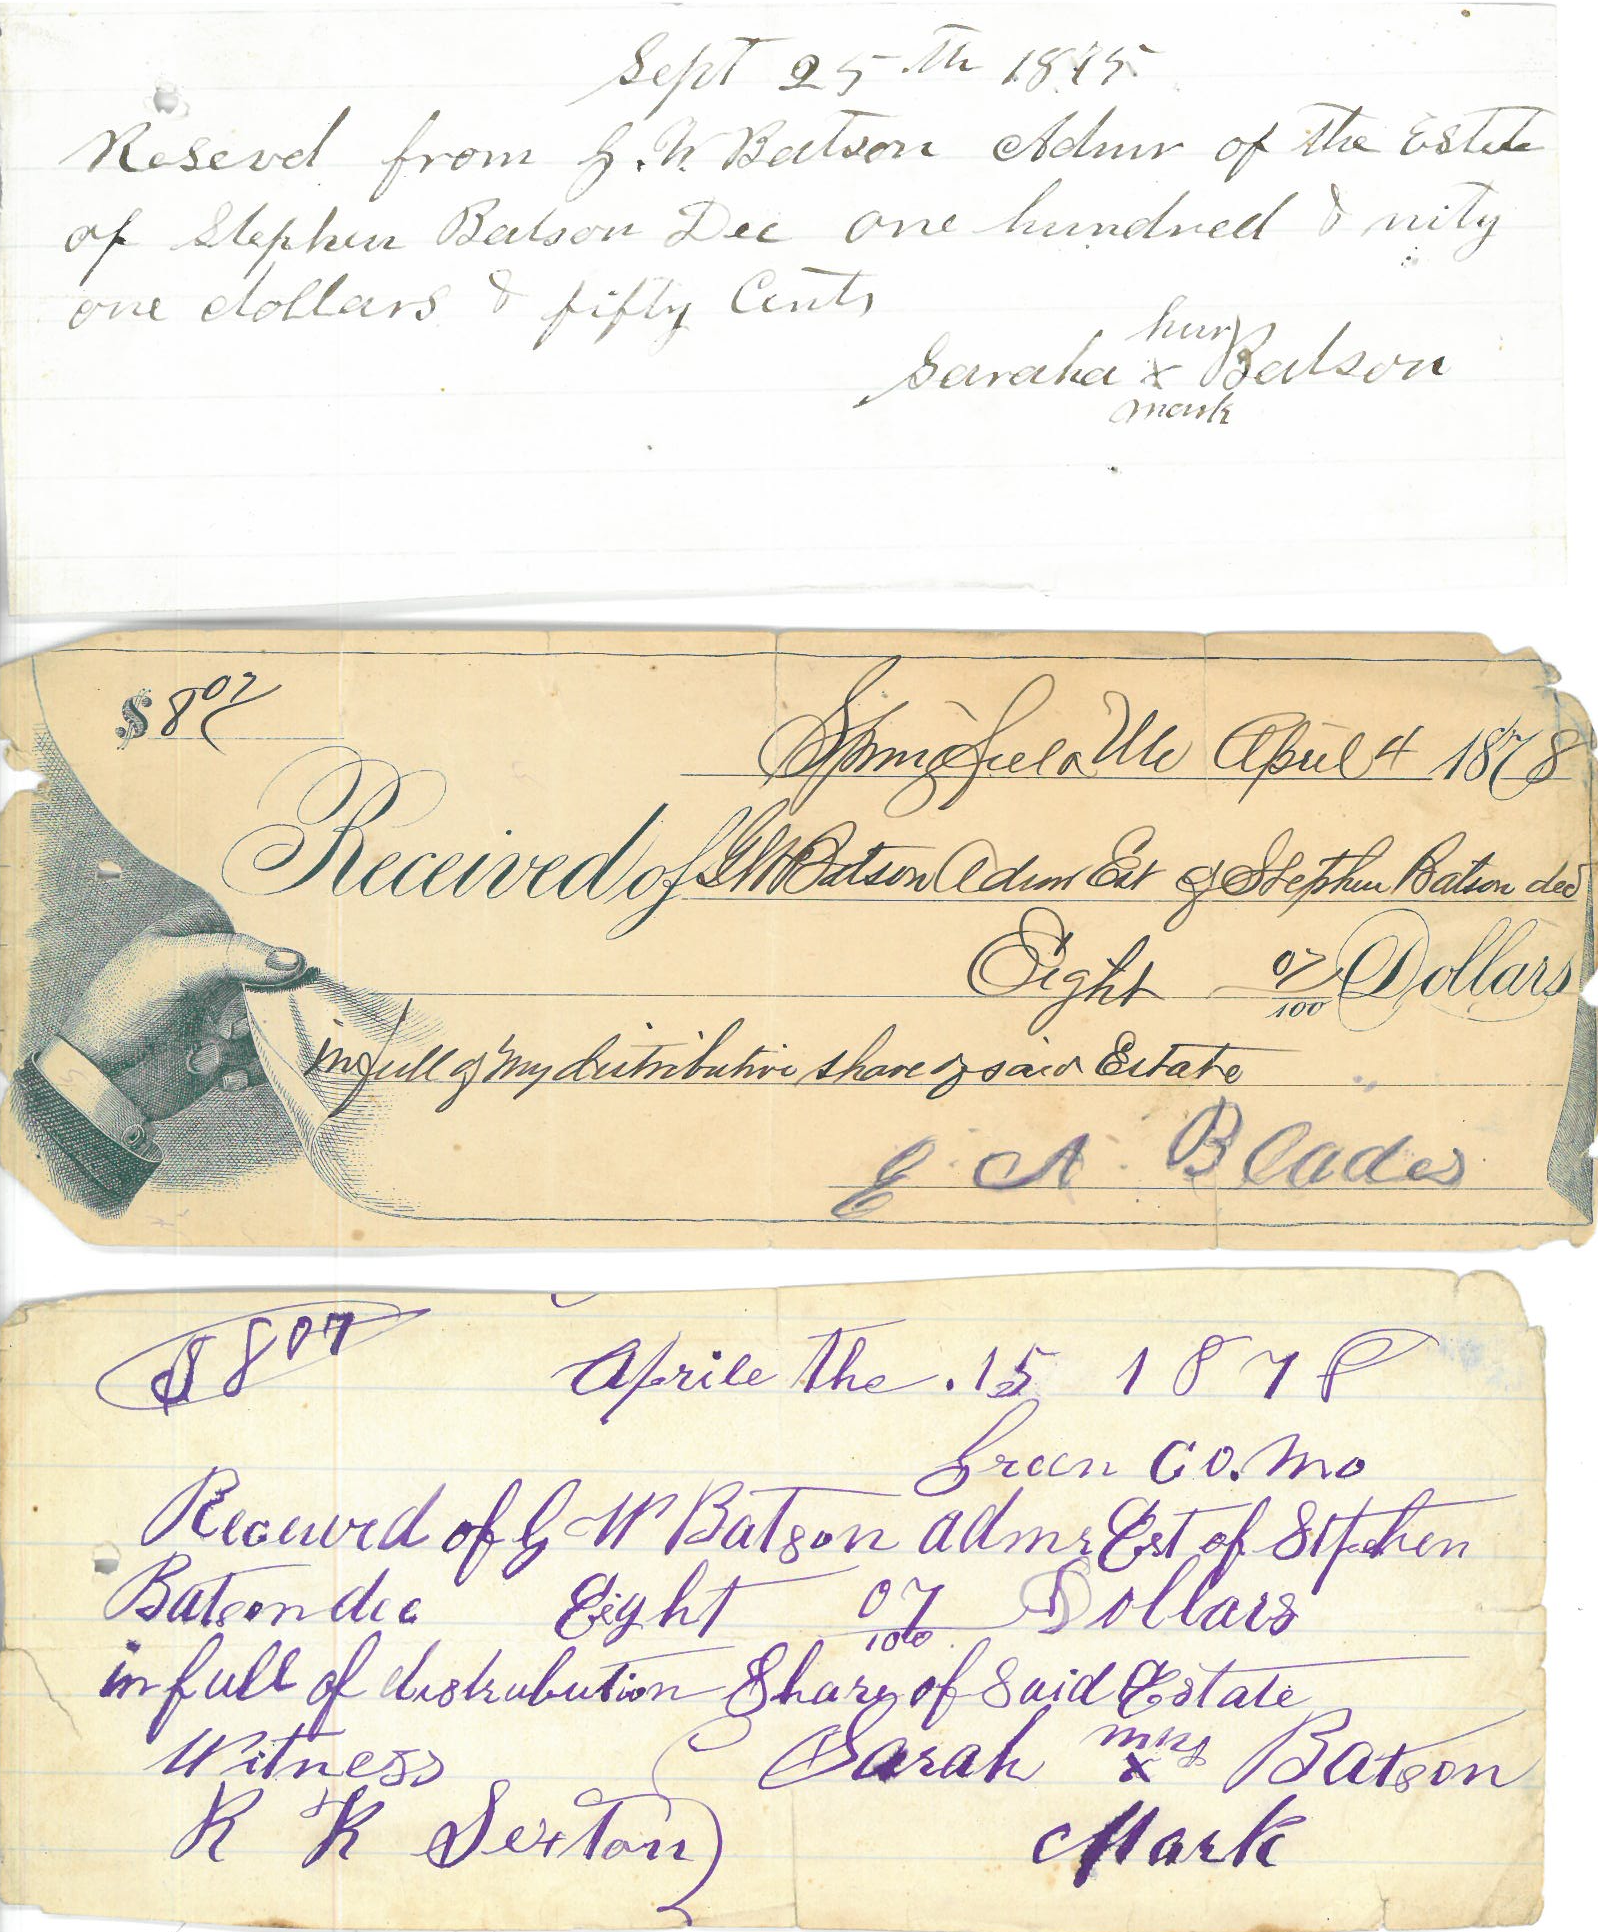 Sept 25th 1875
Resevd from G. W. Batson Admr of the Estate
of Stephen Batson Dec one hundred & nity
one dollars & fifty Cents
hur
Saraha x Batson
mark
$8 07
Springfield Mo April 4 1878
Received of G W Batson Adm Est of Stephen Batson decd
Eight 07/100 Dollars
in full of my distributive share of said Estate
E. A. Blades
$8 07
Aprile the .15 1878
Green Co. Mo
Received of G W Batson admr Est of Stephen
Batson dec Eight 07/100 Dollars
in full of distribution Share of Said Estate
Witness Sarah x Batson
R R Sexton Mark